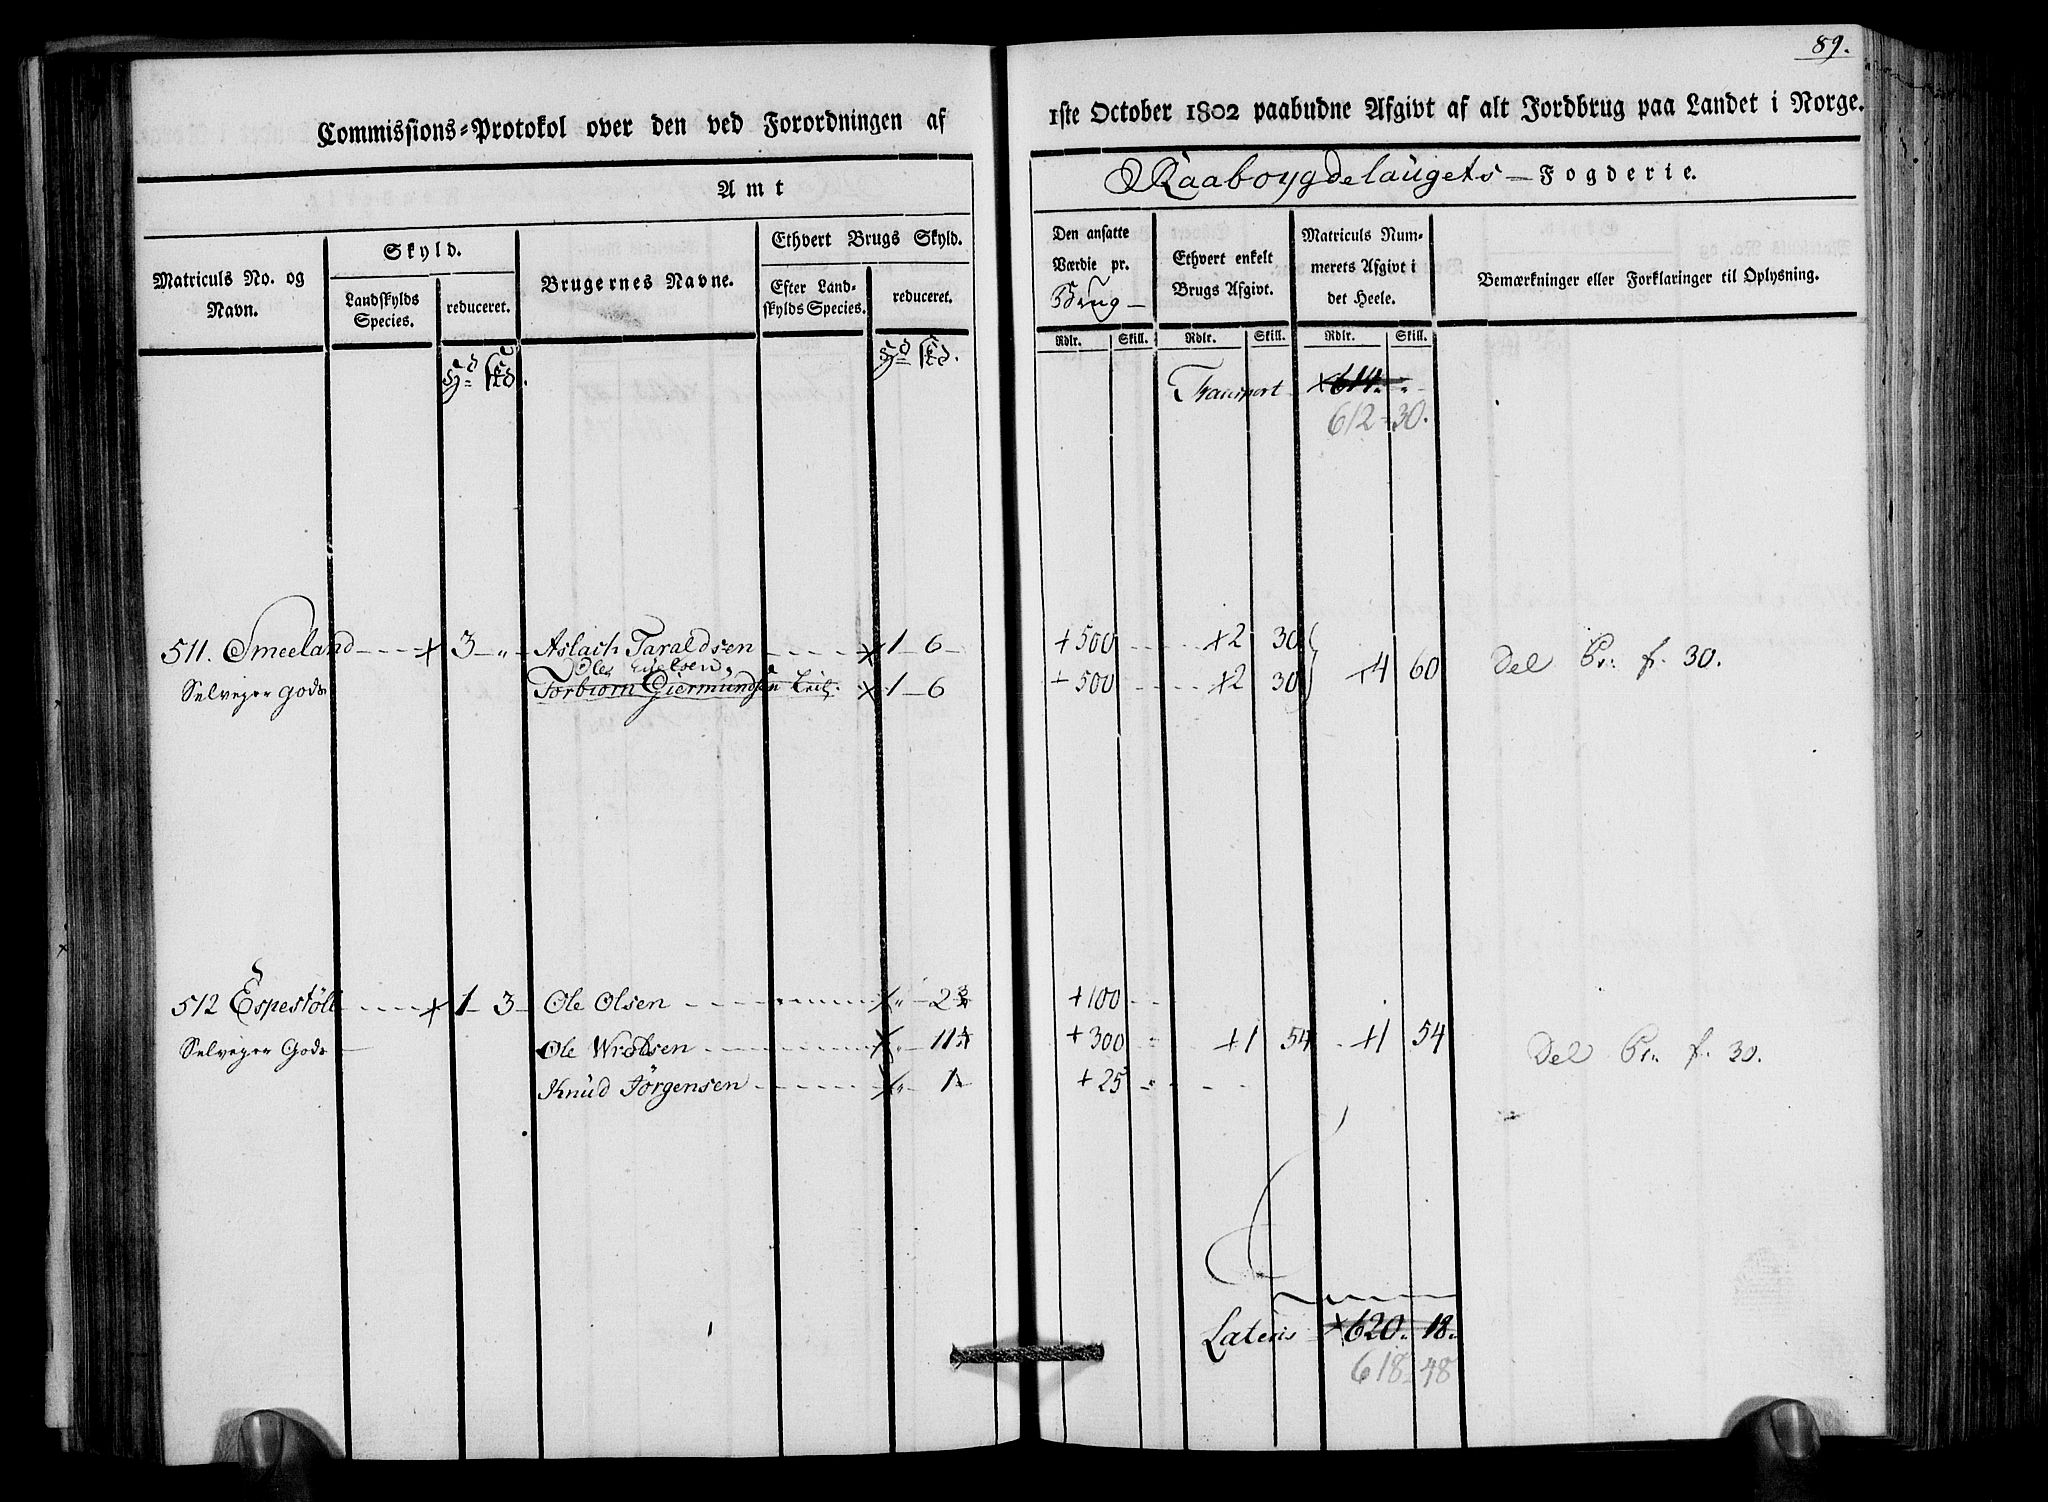 89.
Commissions-Protokol over den ved Forordningen af
1ste October 1802 paabudne Afgivt af alt Jordbrug paa Landet i Norge.
Amt
Raaboygdelaugets Fogderie.
Matriculs No. og Navn.
Skyld.
Landskylds Species.
reduceret.
Brugernes Navne.
Ethvert Brugs Skyld.
Efter Landskylds Species.
reduceret.
Den ansatte Værdie pr. Brug
Ethvert enkelt Brugs Afgivt.
Matriculs Nummerets Afgivt i det Heele.
Bemærkninger eller Forklaringer til Oplysning.
Rdlr. Skill. Rdlr. Skill. Rdlr. Skill.
Hd skd. Hd skd.
Transport x 614 "
612 - 30.
511. Smeeland x 3 " Aslach Taraldsen x 1 6 + 500 x2 30 x4 60 Del Pr: f. 30.
Ole
Selveyer Gods Torbiørn Giermundsen x 1 6 + 500 x2 30
512 Espestöll x 1 3 Ole Olsen x " 2 + 100
Selveyer Gods Ole Wrolsen x " 11 + 300 x1 54 x1 54 Del Pr: f. 30.
Knud Jörgensen x " 1 + 25
Lateris x 620. 18.
618 - 48